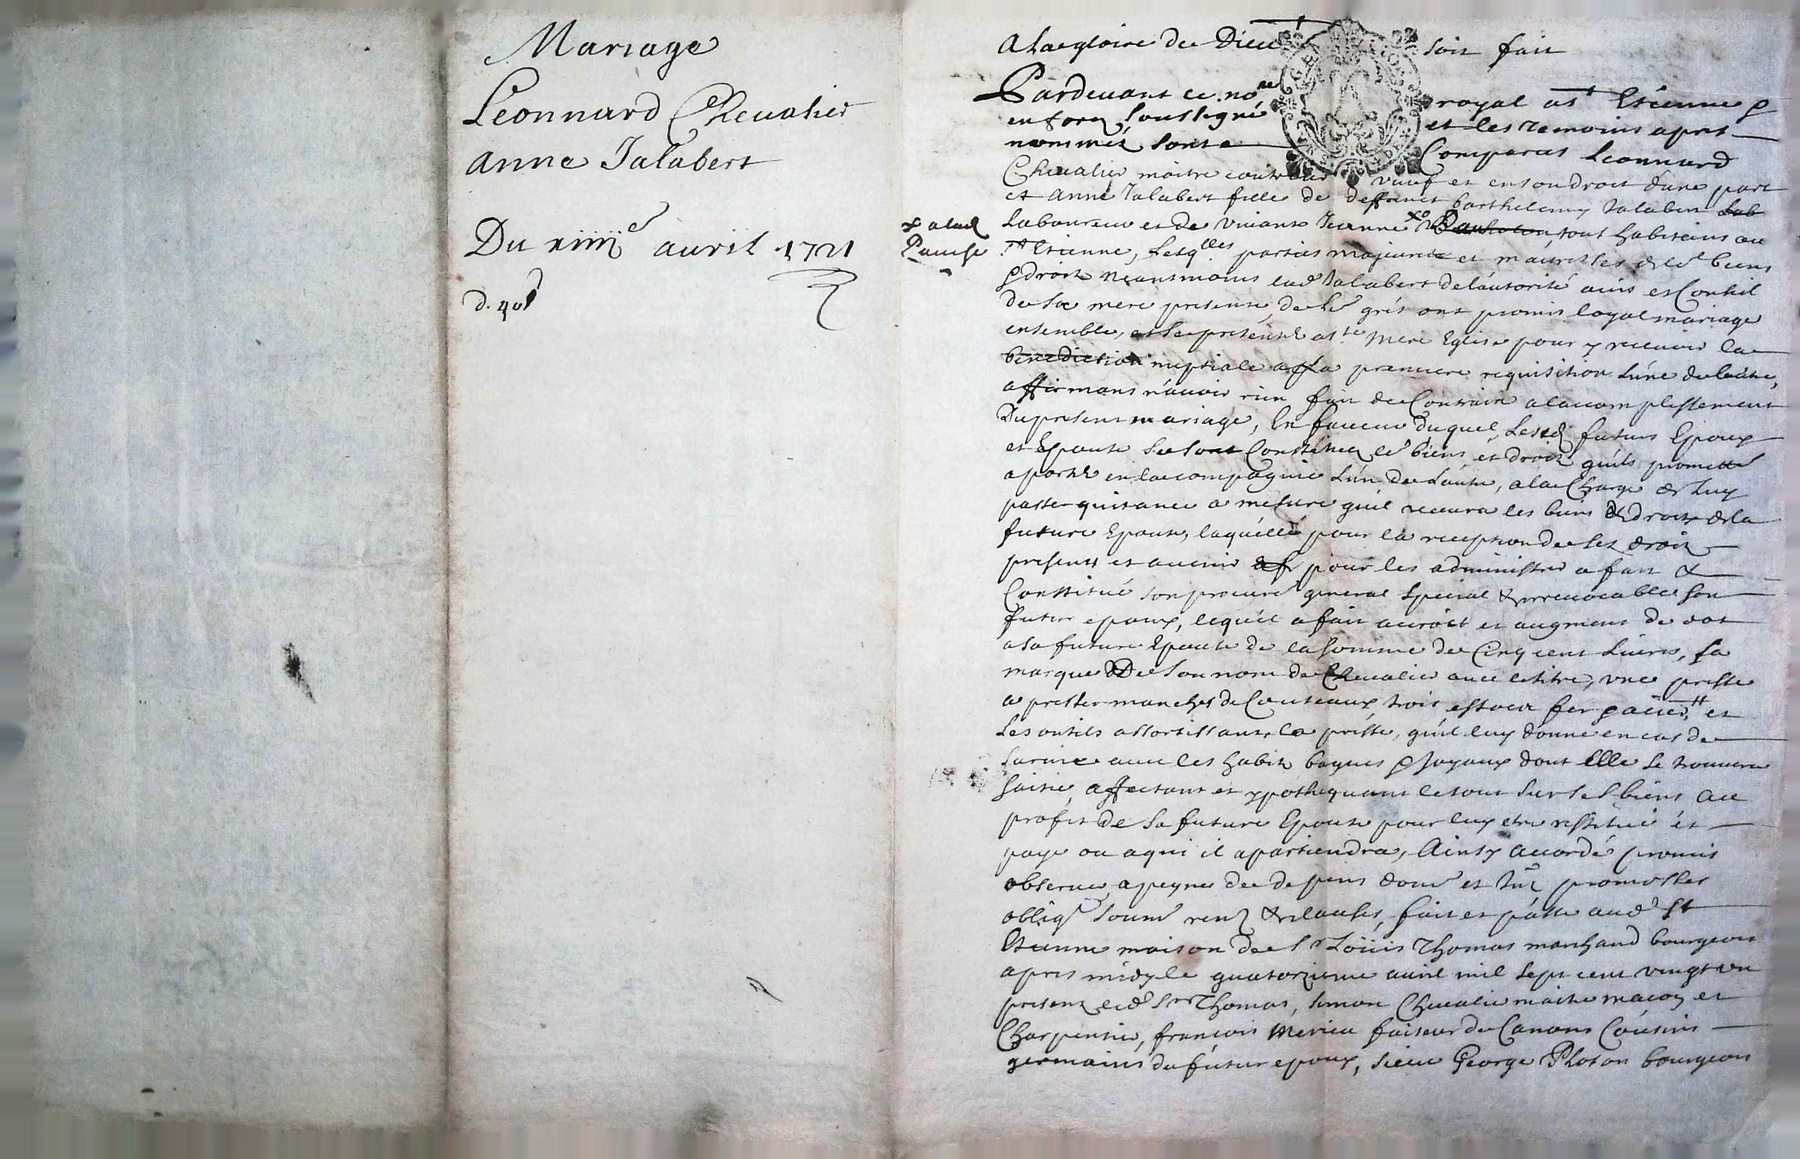 Mariage
Leonnard Chevalier
anne Jalabert
Du xiiii^e avril 1721
d. 40^s
A la gloire de Dieu soit fait
Pardevant le no^re royal a s^t Etienne
en forez soussigné et les temoins apres
nommés sont Comparus Leonnard
Chevalier maitre veuf et en son droit d'une part
et anne Jalabert fille de deffunct barthelemy Jalabert
laboureur et de vivante Jeanne tous habitans au
s^t Etienne, lesq^lles parties majeures et maitresses de le^s biens
& droits neantmoins lad Jalabert de l'autorité avis et Conseil
de sa mere presente, de le^r grés ont promis loyal mariage
ensemble, et se presenter a s^te mere Eglise pour y recevoir la
benediction nuptiale a la premiere requisition l'une de l'autre,
affirmans n'avoir rien fait de Contraire a l'accomplissement
Du present mariage, En faveur duquel lesd futurs Epoux
et Epouse se sont Constitués le^s biens et droits qu'ils promettent
aporter en la compagnie l'un de l'autre, a la Charge de luy
passer quitance a mesure qu'il recevra les biens & droits de la
future Epouse, laquelle pour la reception de ses droits
presents et avenir pour les administrer a fait &
Constitué son procureur general special & irrevocable son
futur epoux, lequel a fait accroist et augment de dot
a sa future Epouse de la somme de Cinq cent livres, sa
marque De son nom de Chevalier avec le titre, une presse
a presser manches de Couteaux, trois estocs fer & acier, et
les outils assortissants la presse, qu'il luy donne en cas de
survie avec les habits bagues & joyaux dont elle se trouvera
saisie, affectant et ypothequant le tout sur ses biens au
profit de sa future Epouse pour luy etre restitué et
payé ou a qui il apartiendra, Ainsy accordé promis
observer a peyne de depens dom^s et promesses
oblig^n soum^n ren^n & clauses, fait et passé aud^t St
Etienne maison de s^r Loüis Thomas marchand bourgeois
apres midy le quatorzieme avril mil sept cent vingt un
presents led^t s^r Thomas, Simon Chevalier maitre maçon et
Charpentier, françois Merieu faiseur de Canons Cousins
germains du futur epoux, sieur George Photon bourgeois